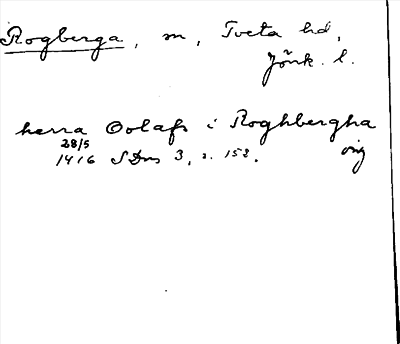 Rogberga, sn, Tveta hd,
Jönk. l.
herra Oolafs i Roghbergha
28/5
1416 SDns 3, s. 152. orig